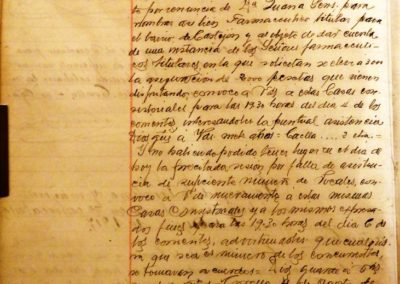 ta por renuncia de Dª Juana Gens. para
nombrar a bien Farmaceutico titular para
el barrio de Castejon y al objeto de dar cuenta
de una instancia de los Señores farmaceuti-
cos titulares en la que solicitan se eleve a 3.000
la asignacion de 2000 pesetas que vienen
disfrutando, convoco a Vds a estas Casas con-
sistoriales para las 19.30 horas del dia 4 de los
corrientes, interesandoles la puntual asistencia
Dios gûe à Vds mchs años =
Y no habiendo podido tener lugar en el dia de
hoy la precitada sesion por falta de asisten-
cia de suficiente numero de Vocales, con-
voco a Vds nuevamente a estas mismas
Casas Consistoriales y a los mismos expresa-
dos fines para las 19.30 horas del dia 6 de
los corrientes, advirtiendoles que cualquie-
ra que sea el numero de los concurrentes,
se tomaran acuerdos = Dios guarde a Vds